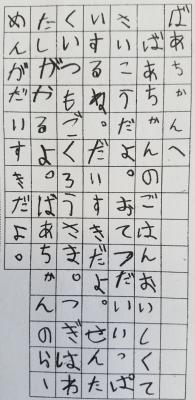 ばあちかんへ
ばあちかんのごはんおいしくて
さいこうだよ。おてつだいいっぱ
いするね。だいすきだよ。せんた
くいつもごくろうさま。つぎはわ
たしがかるよ。ばあちかんのらー
めんがだいすきだよ。